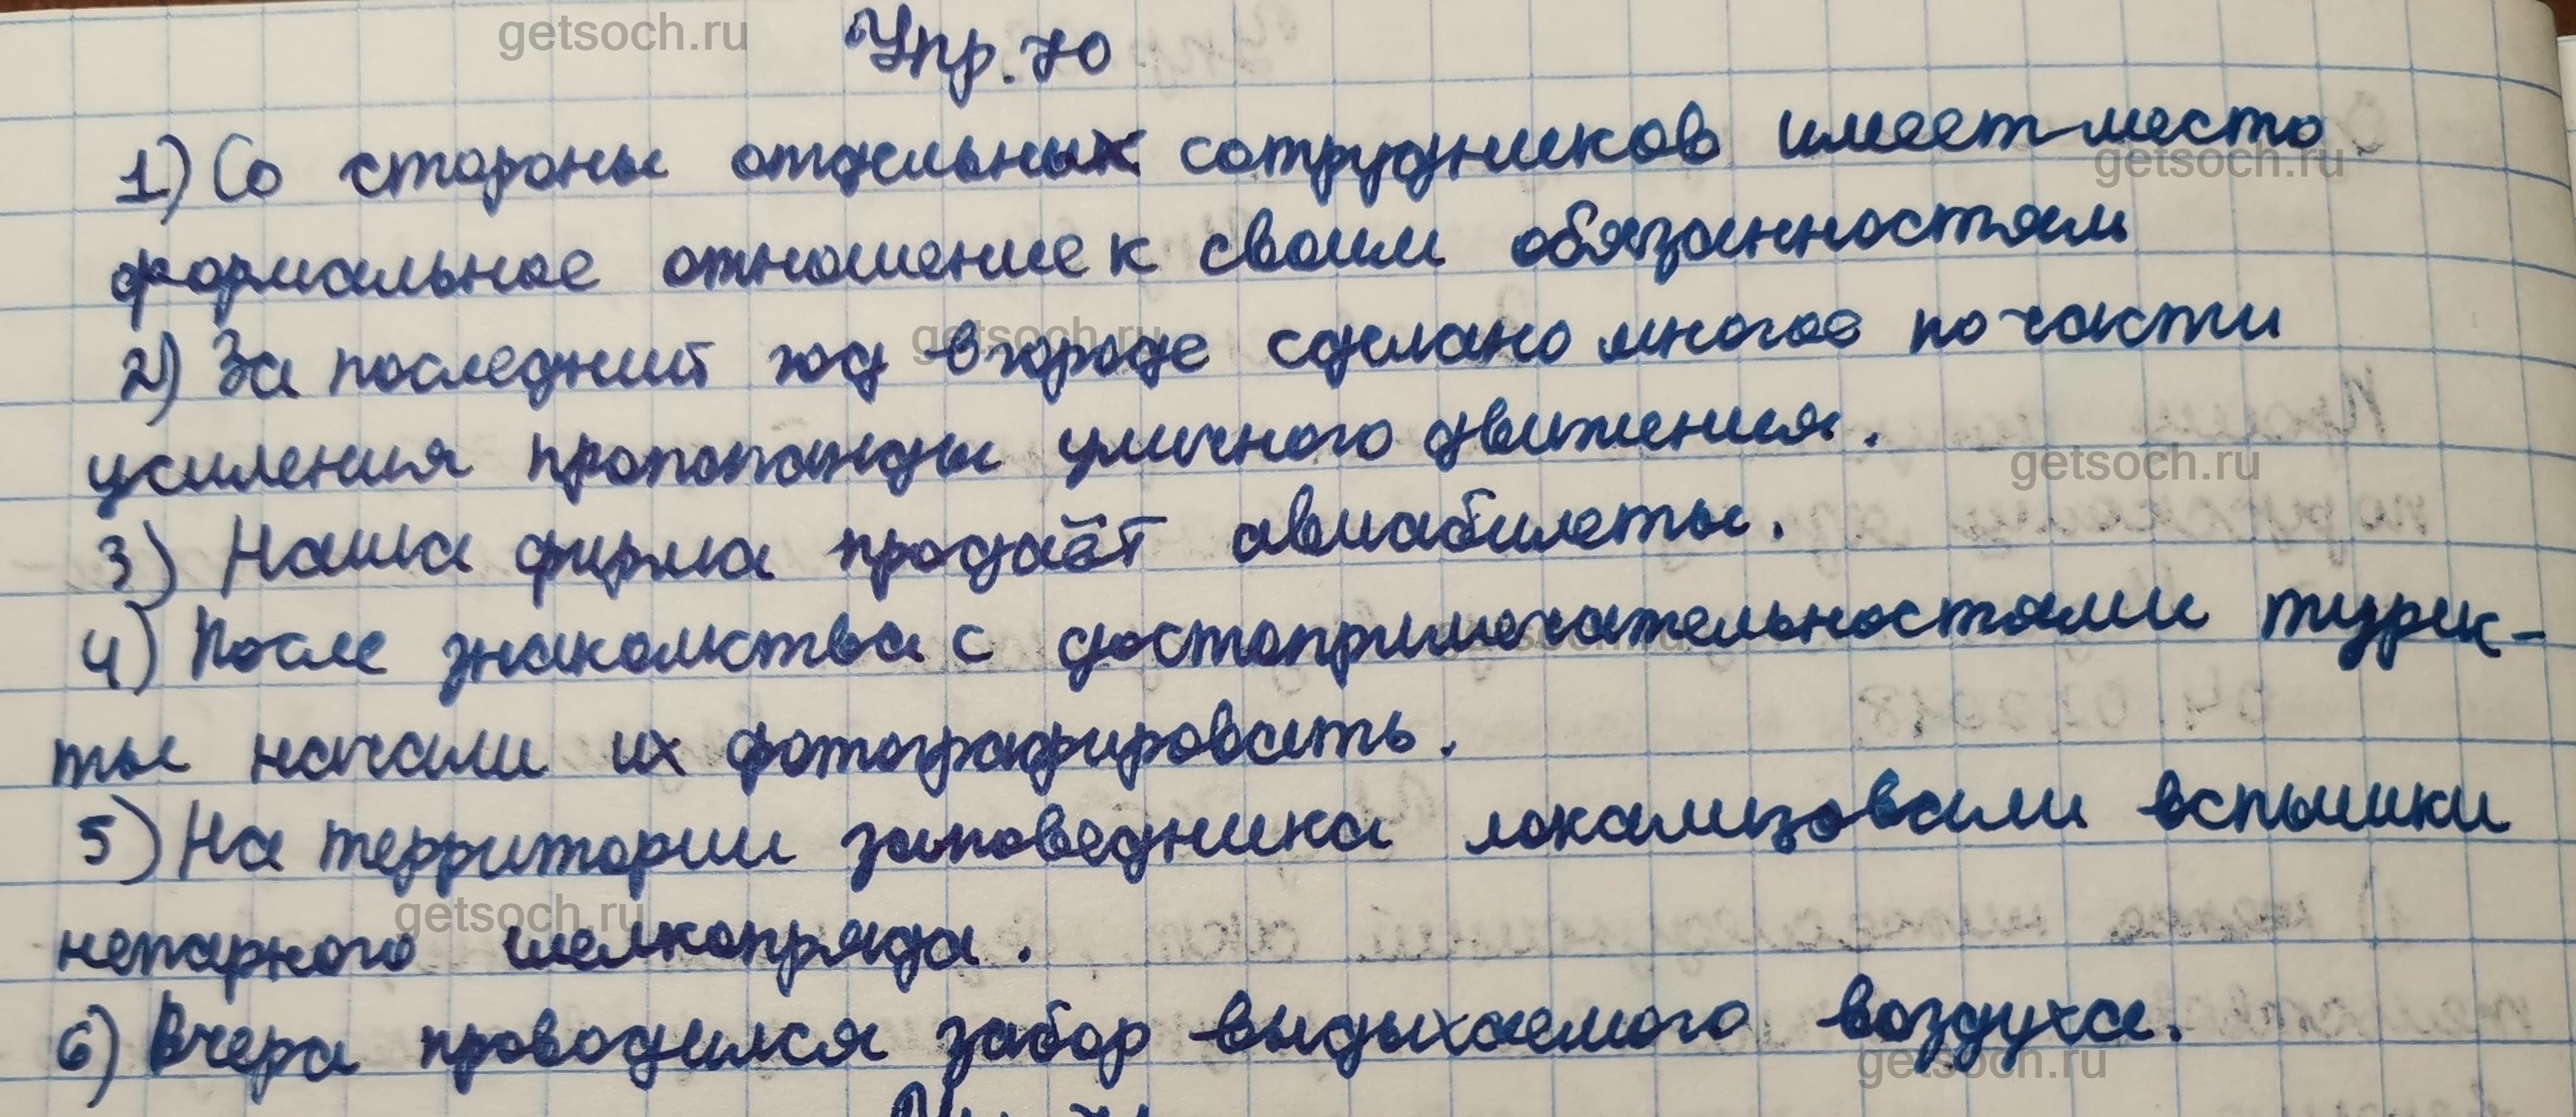 Упр. 70
1) Со стороны отдельных сотрудников имеет место
формальное отношение к своим обязанностям
2) За последний год в городе сделано многое по части
усиления пропоганды уличного движения.
3) Наша фирма продаёт авиабилеты.
4) После знакомства с достопримечательностями турис-
ты начали их фотографировать.
5) На территории заповедника локализовали вспышки
непарного шелкопряда.
6) Вчера проводился забор выдыхаемого воздуха.
getsoch.ru
getsoch.ru
getsoch.ru
getsoch.ru
getsoch.ru
getsoch.ru
getsoch.ru